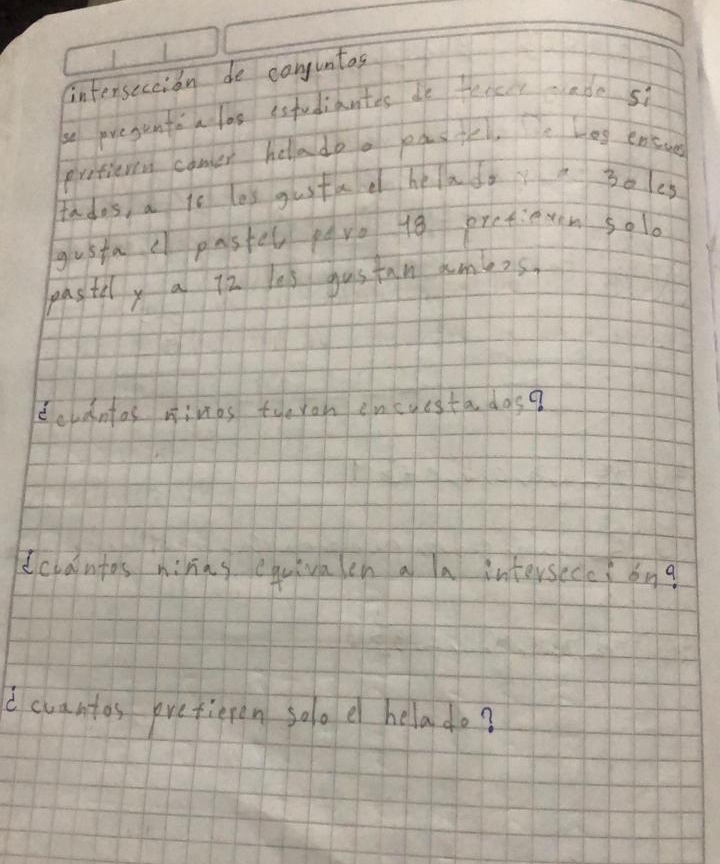 intersección de conjuntos
se preguntó a los estudiantes de tercer grado si
prefieren comer helado o pastel. De los encues
tados, a 16 les gusta el helado y a 30 les
gusta el pastel pero 18 prefieren solo
pastel y a 12 les gustan ambos.
¿cuántos niños fueron encuestados?
¿cuántos niñas equivalen a la intersección?
¿cuantos prefieren solo el helado?